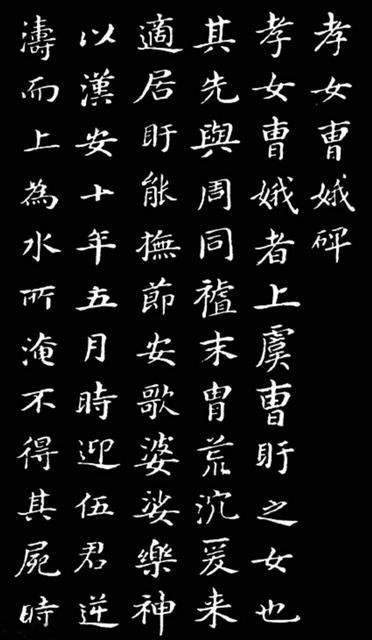 孝女曹娥碑
孝女曹娥者上虞曹盱之女也
其先與周同祖末胄荒沉爰来
適居盱能撫節安歌婆娑樂神
以漢安十年五月時迎伍君逆
濤而上為水所淹不得其屍時